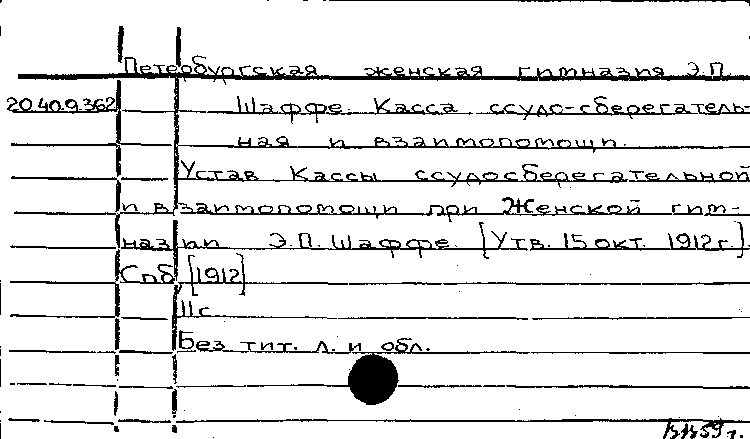 Петербургская женская гимназия Э.П.
20.40.9.362 Шаффе. Касса ссудо-сберегатель-
ная и взаимопомощи.
Устав Кассы ссудосберегательной
и взаимопомощи при Женской гим-
назии Э.П. Шаффе. [Утв. 15 окт. 1912 г.].
Спб, [1912]
11 с.
Без тит. л. и обл.